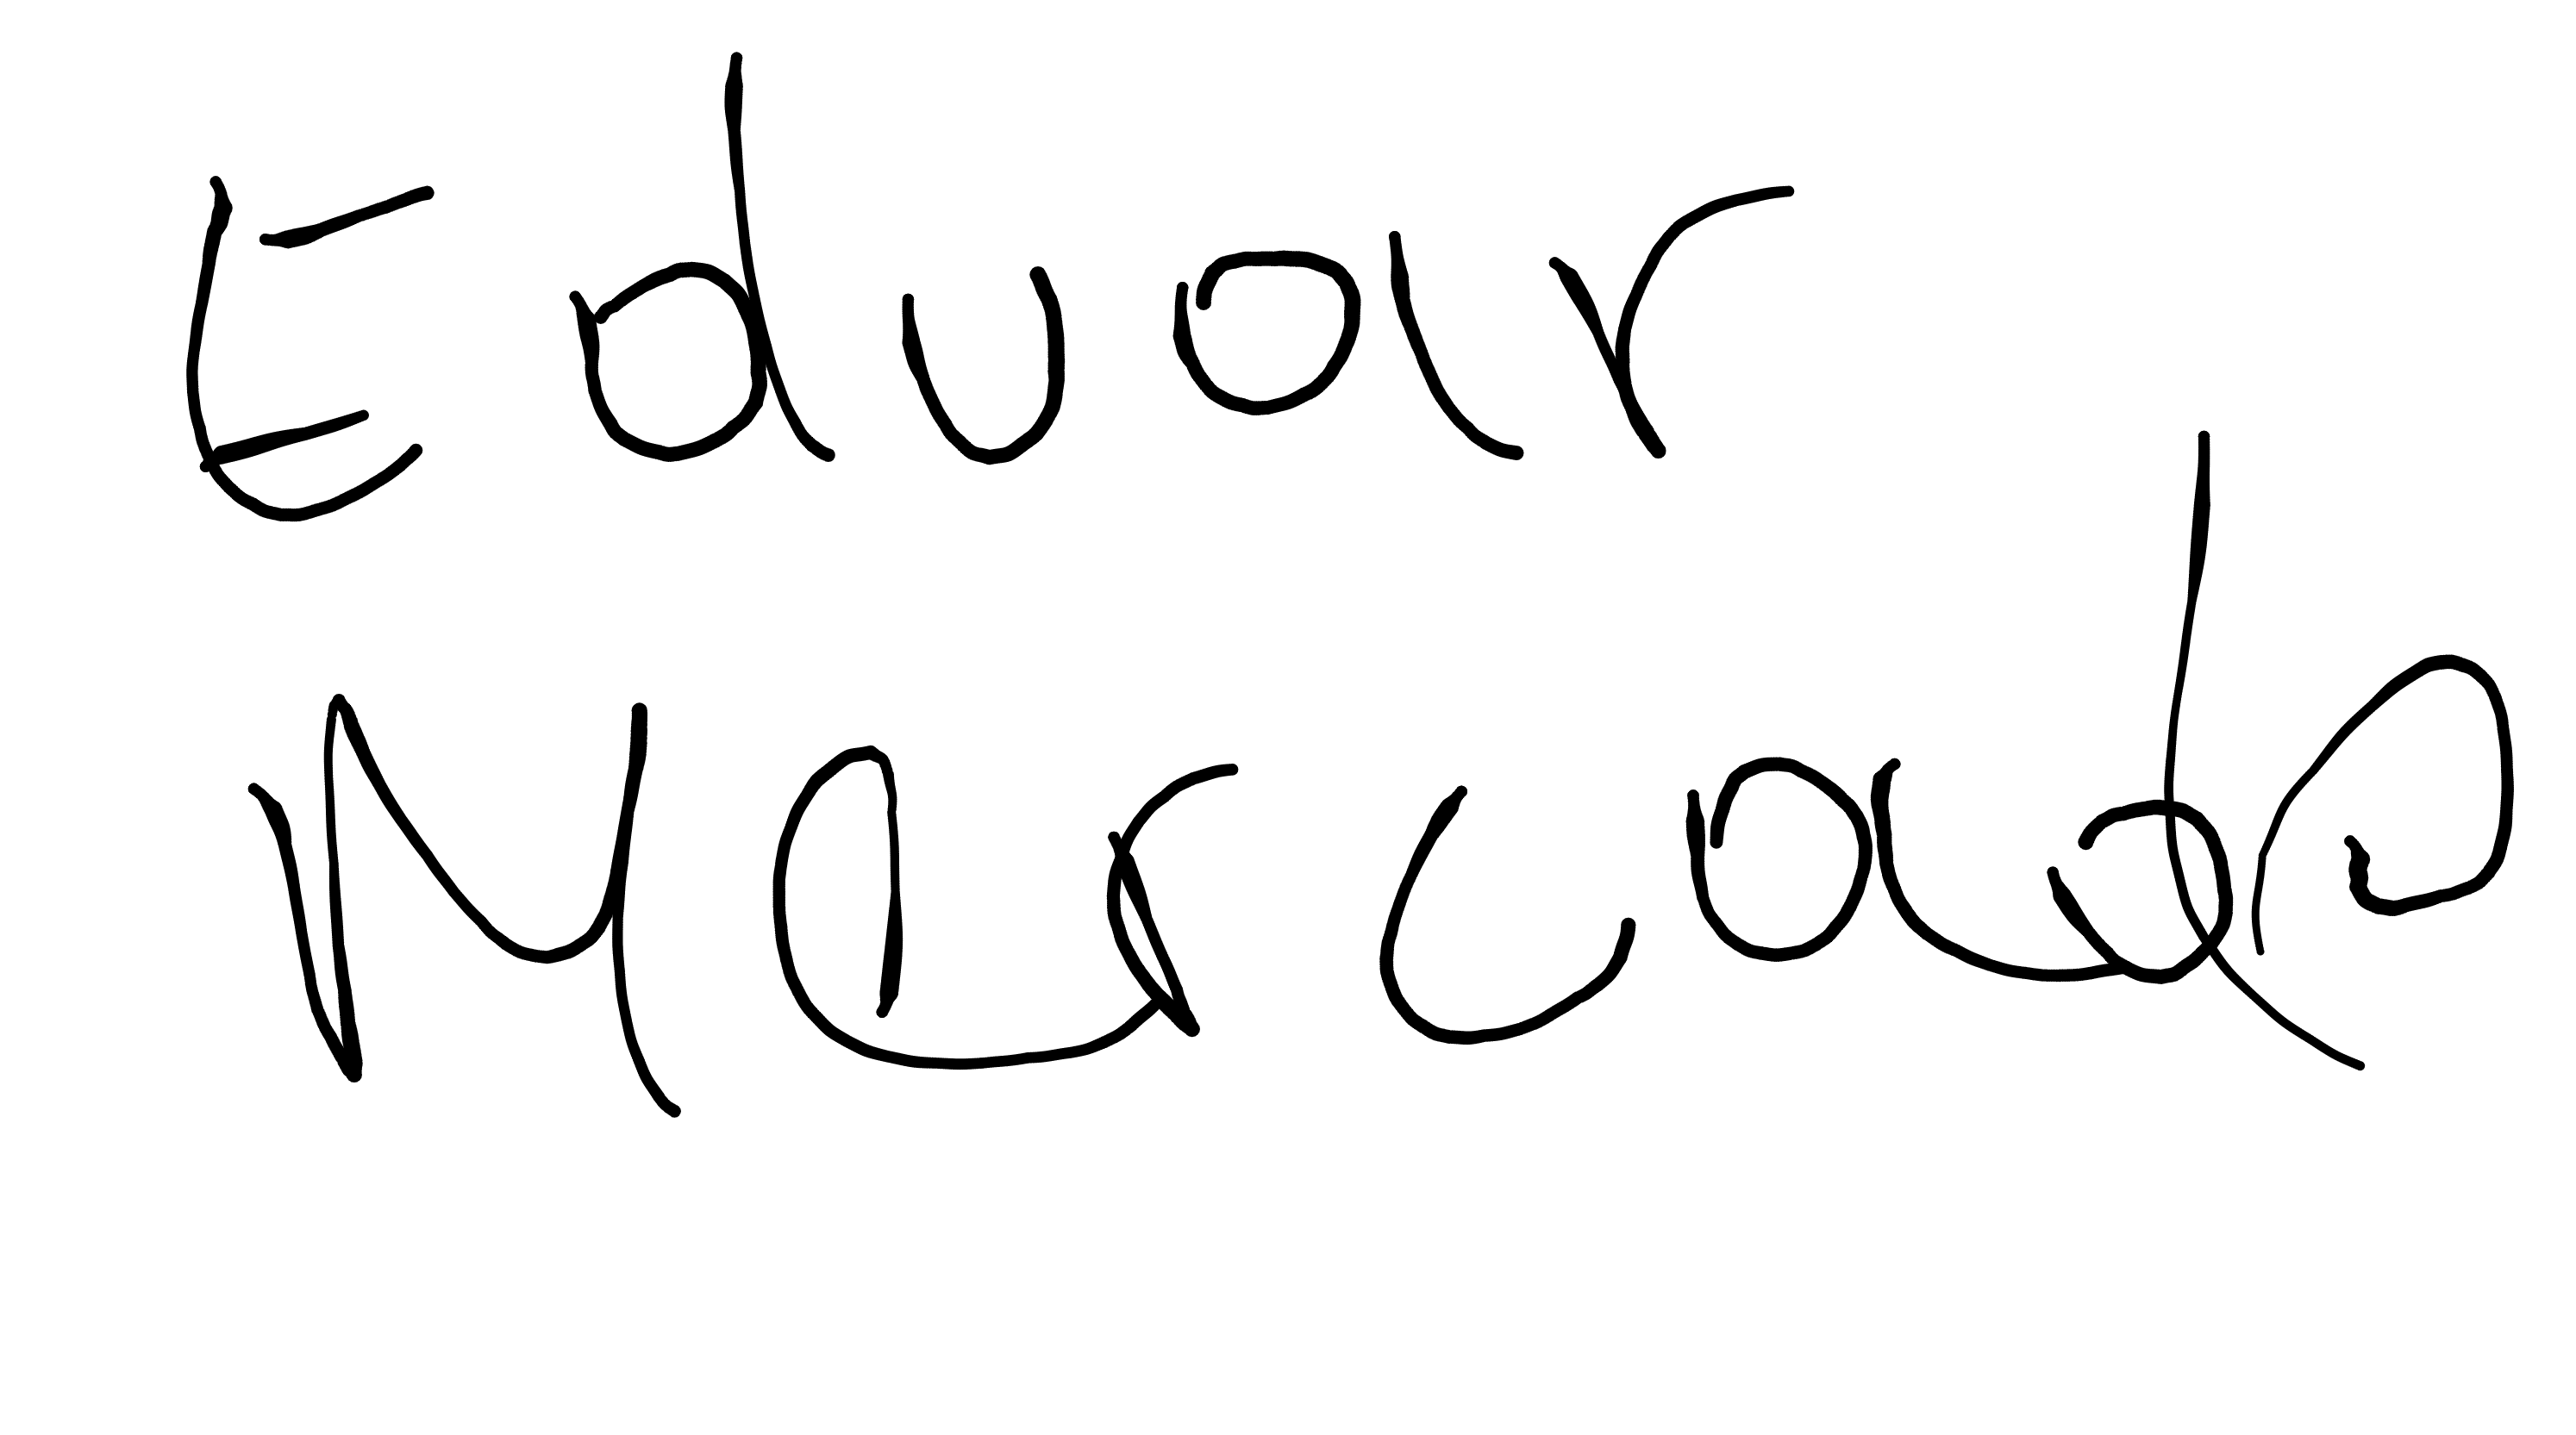 Eduar
Mercado